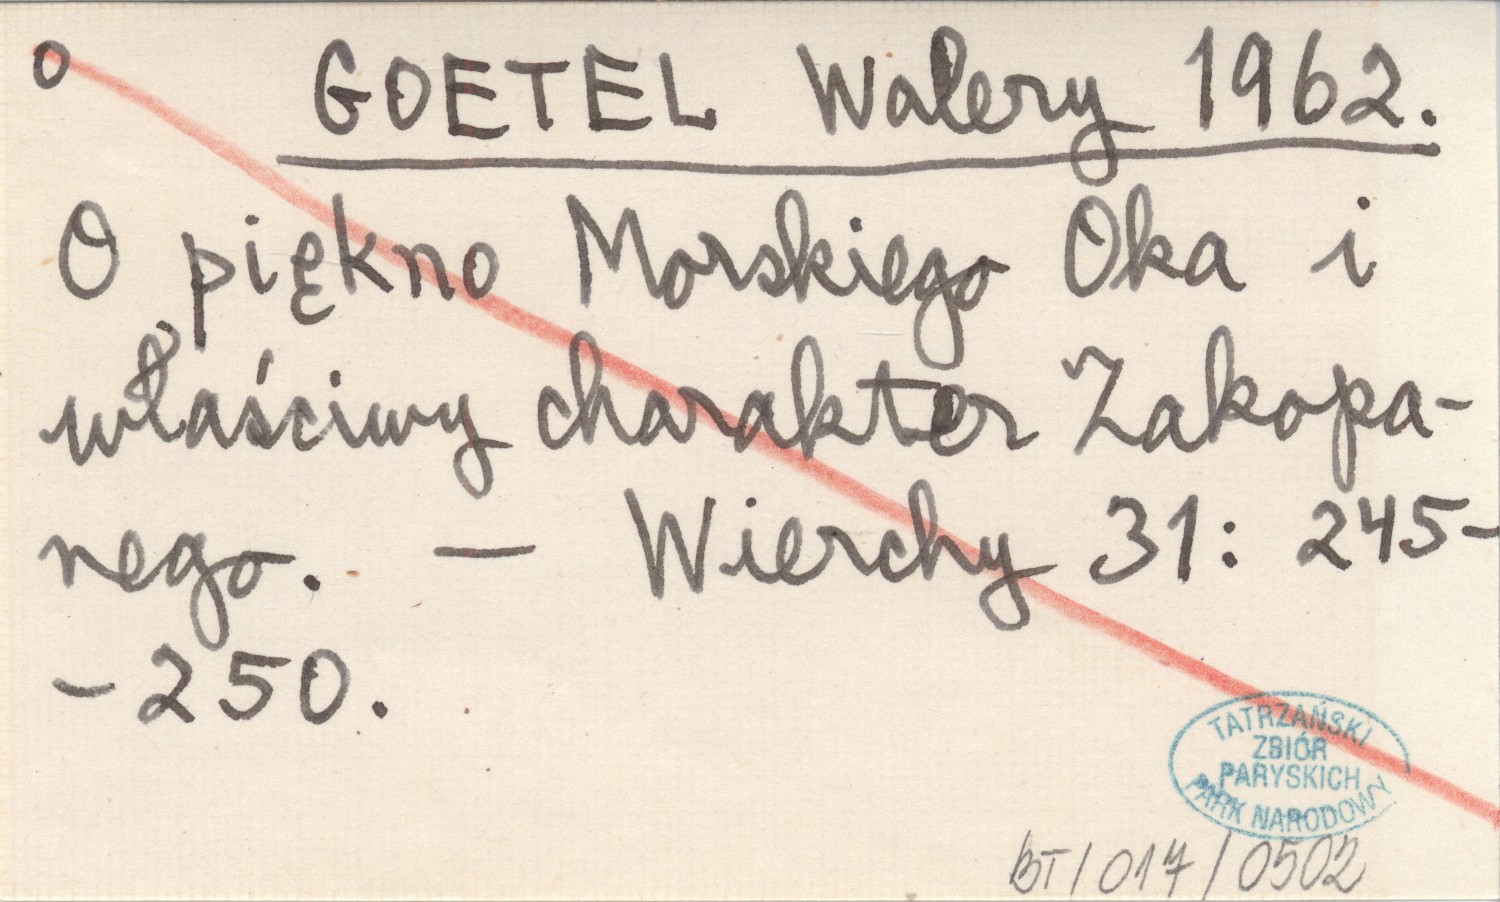 o GOETEL Walery 1962.
O piękno Morskiego Oka i
właściwy charakter Zakopa-
nego. — Wierchy 31: 245-
-250.
TATRZAŃSKI
ZBIÓR
PARYSKICH
PARK NARODOWY
BT/017/0502